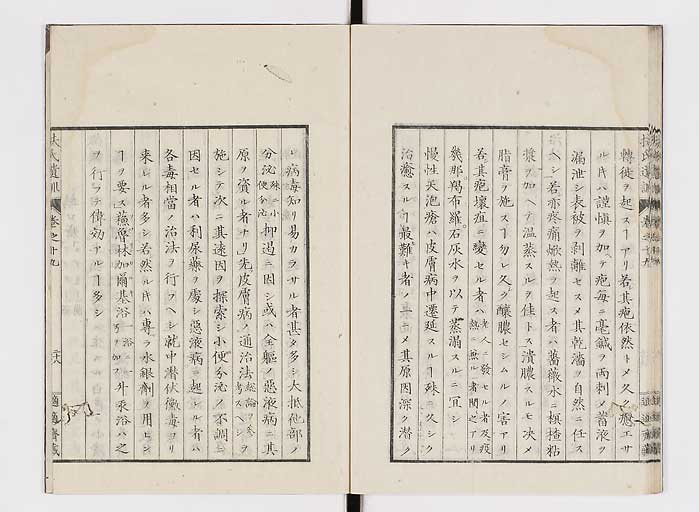 轉徙ヲ起スヿアリ若其疱依然トメ久ク癒エサ
ル片ハ謹慎ヲ加ヘテ疱毎ニ毫鍼ヲ両刺メ蓄液ヲ
漏泄シ表被ヲ剥離セスメ其乾涸ヲ自然ニ任ス
ヘシ若亦疼痛焮熱ヲ起ス者ハ薔薇水ニ榲桲粘
漿ヲ加ヘテ温蒸スルヲ佳トス潰膿スルモ决メ
脂膏ヲ施スヿ勿レ久ク醸膿セシムルノ害アリ
若其疱壊疽ニ變セル者ハ老人ニ發セル者及疫熱ニ無ル者間之アリ
幾那羯布羅石灰水ヲ以テ蒸溻スルニ冝シ
慢性天泡瘡ハ皮膚病中遷延スルヿ殊ニ久シク
治癒スルヿ最難キ者ノ一ニメ其原因深ク潜ノ
病毒知リ易カラサル者甚タ多シ大抵他部ノ
分泌殊ニ小便分泌抑遏ニ因シ或ハ全軀ノ惡液病ニ其
原ヲ資ル者ナリ先皮膚病ノ通治法總論ヲ参考スヘシヲ
施シテ次ニ其遠因ヲ探索シ小便分泌ノ不調ニ
因セル者ハ利尿藥ヲ處シ惡液病ニ起レル者ハ
各毒相當ノ治法ヲ行フヘシ就中潜伏黴毒ヨリ
來レル者多シ若然ル片ハ専ラ水銀劑ヲ用ヒン
ヿヲ要ス
ヲ行フテ偉効アルヿ多シ
扶氏遺訓
巻之十九
廿八
適適齋藏